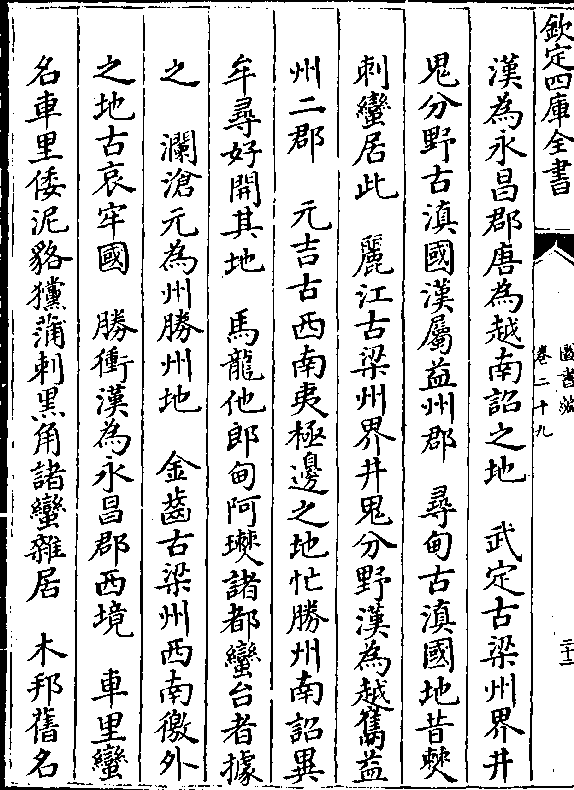 欽定四庫全書
圖書編
卷二十九
三十二
漢為永昌郡唐為越南詔之地　武定古梁州界井
鬼分野古滇國漢屬益州郡　尋甸古滇國地昔僰
刺蠻居此　麗江古梁州界井鬼分野漢為越嶲益
州二郡　元吉古西南夷極邊之地忙勝州南詔異
牟尋好開其地　馬龍他郎甸阿僰諸都蠻台者據
之　瀾滄元為州勝州地　金齒古梁州西南徼外
之地古哀牢國　勝衝漢為永昌郡西境　車里蠻
名車里倭泥貉獛蒲刺黑角諸蠻雜居　木邦舊名